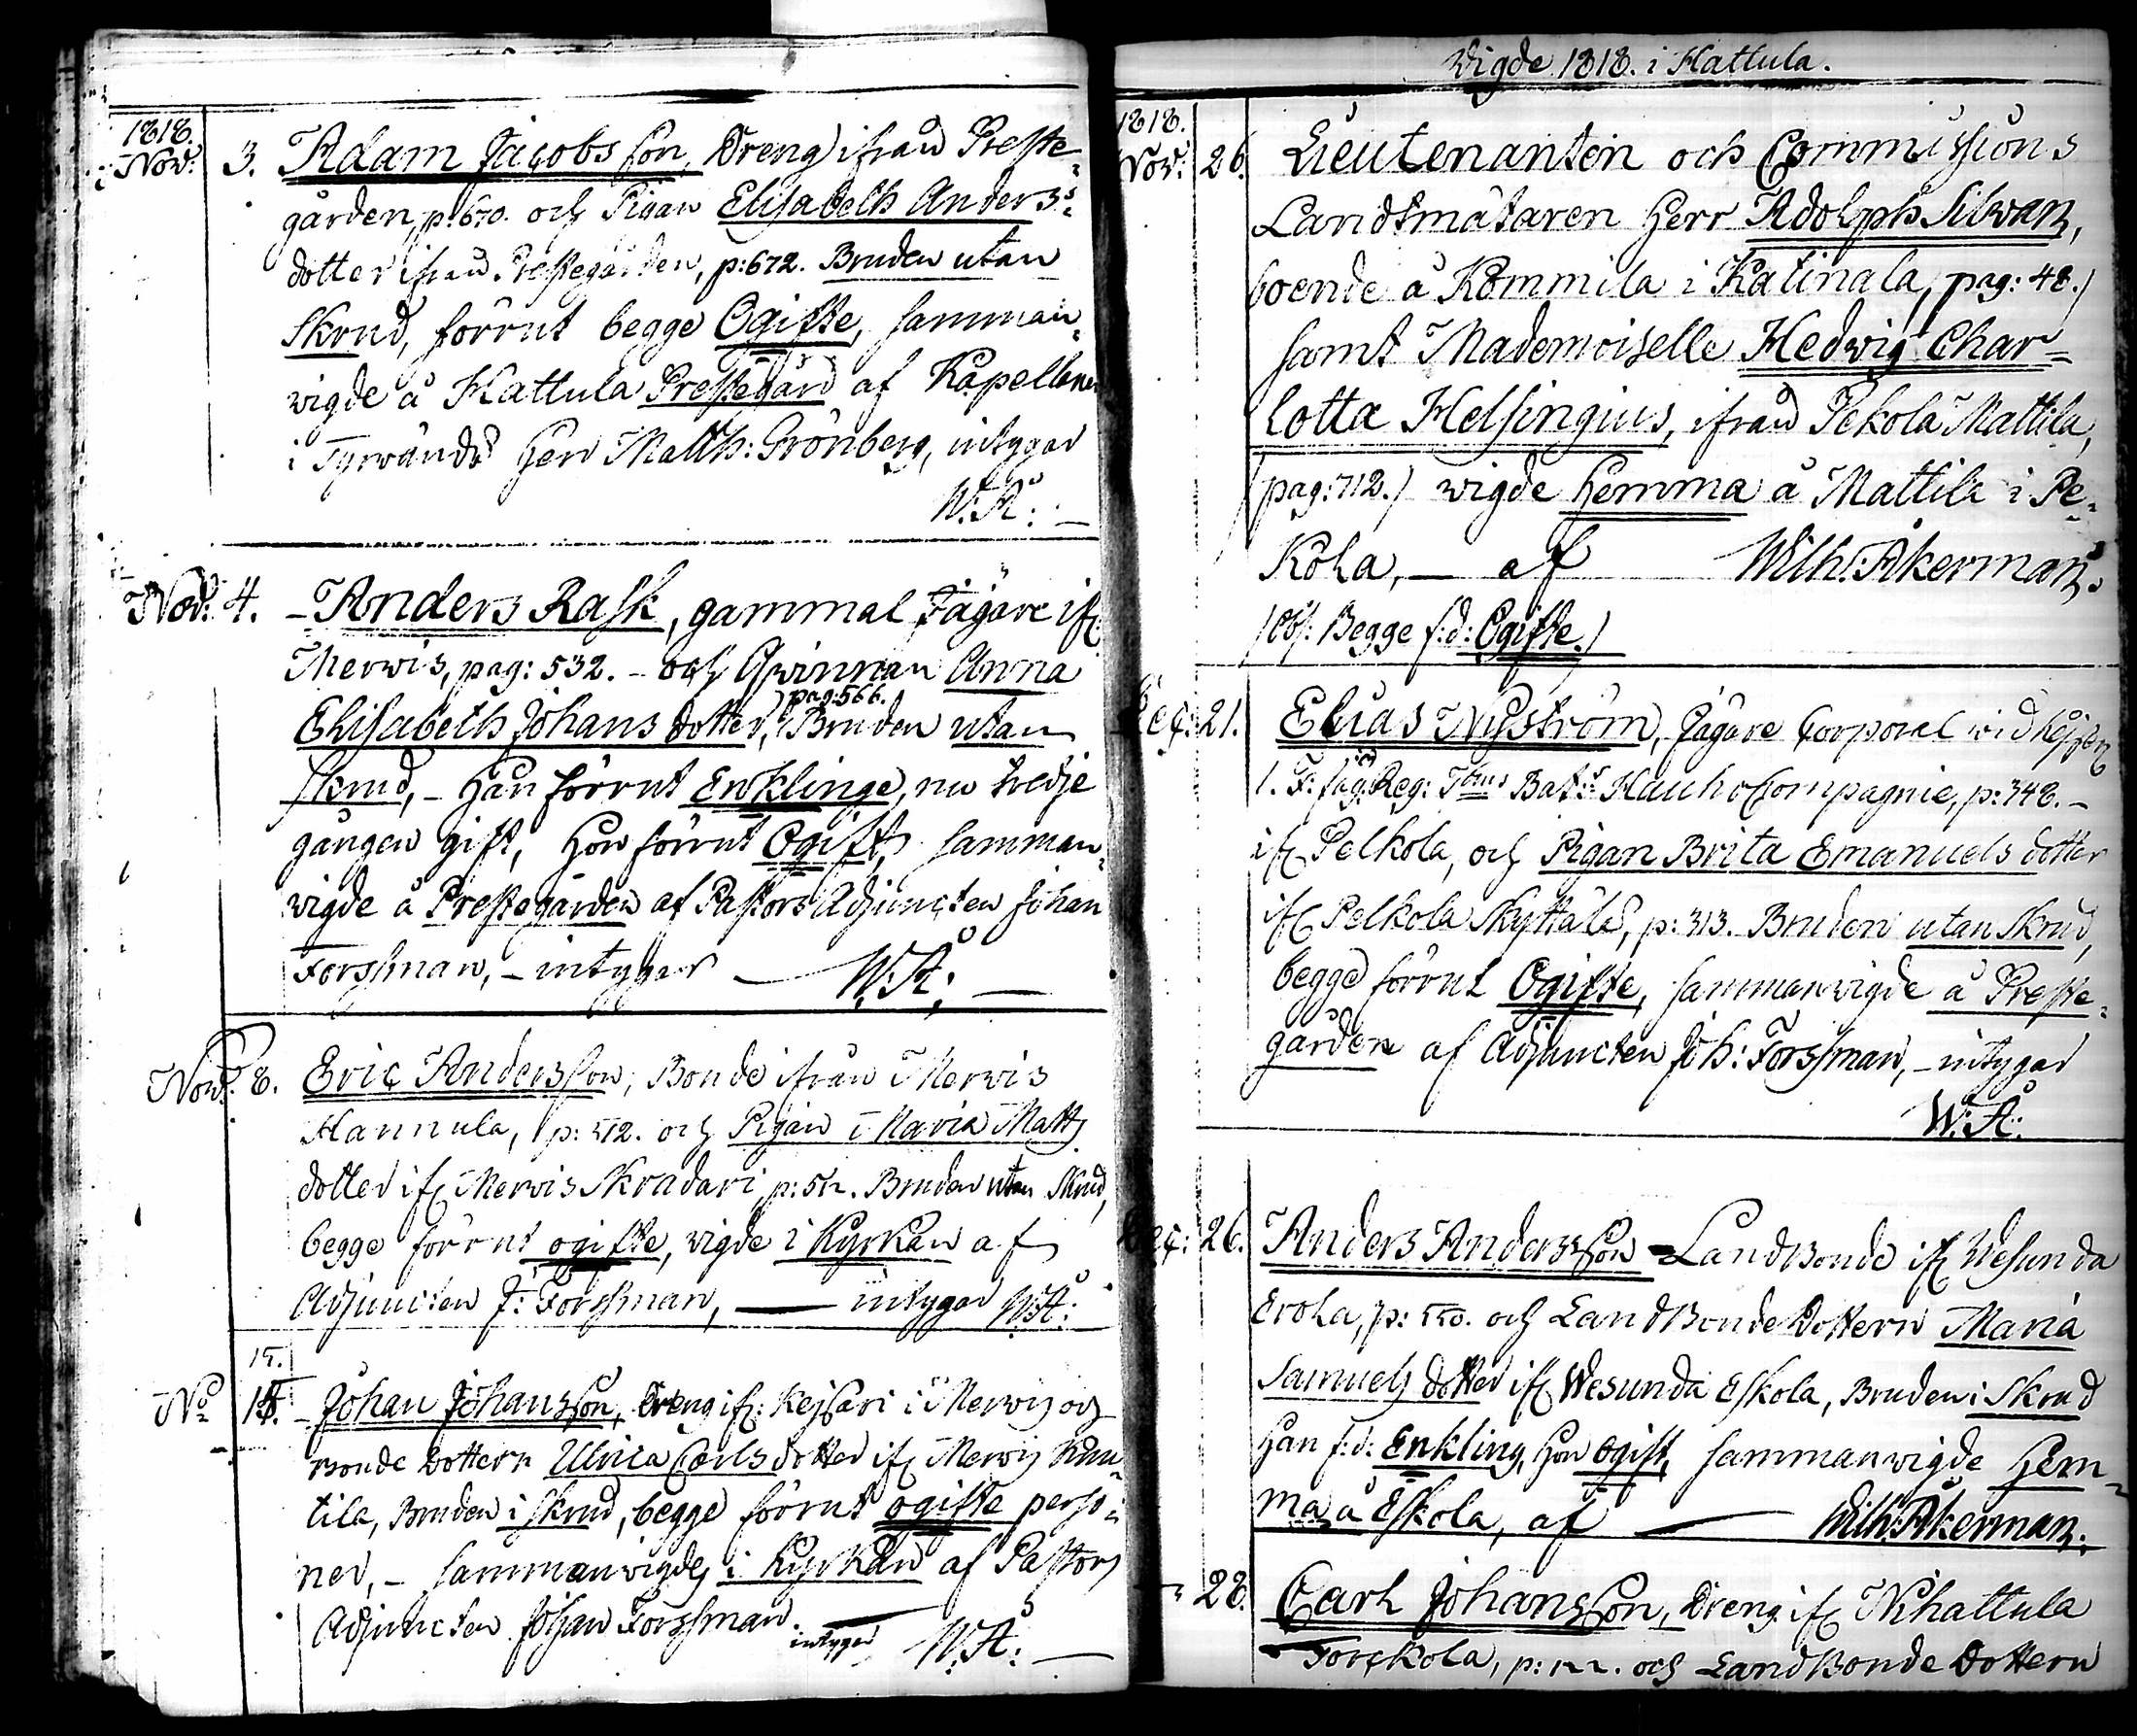 1818.
Nov: 3. Adam Jacobs son, Dreng ifrån Preste-
gården, p: 670. och Pigan Elisabeth Anders-
dotter ifrån Prestegården, p: 672. Bruden utan
Skrud, förrut begge Ogifte, samman-
wigde å Hattula Prestegård af Kapellanen
i Tyrwändö Herr Matth: Grönberg, intygar
W: Å: —
Nov: 4. – Anders Rask, gammal Jägare ifr
Merwis, pag: 532. – och Qwinnan Anna
Elisabeth Johans dotter, pag: 566. Bruden utan
skrud, – Han förrut Enklinge, nu tredje
gången gift, Hon förrut Ogift, samman-
wigde å Prestegården af Pastors Adjuncten Johan
Forssman, – intygar — W: Å: —
Nov: 8. Eric Andersson, Bonde ifrån Merwis
Hannula, p: 512. och Pigan Maria Matts
dotter ifr Merwis Skradari, p: 512. Bruden utan Skrud,
begge förrut ogifte, wigde i Kyrkan af
Adjuncten J: Forssman, — intygar W: Å:
15.
No 15. – Johan Johansson, Dreng ifr: Kejsari i Merwis och
Bonde Dottern Ulrica Carls dotter ifr Merwis
tila, Bruden i skrud, begge förrut ogifte perso-
ner, – sammanwigde i Kyrkan af Pastors
Adjuncten Johan Forssman. — intygar W: Å: —
Wigde 1818. i Hattula.
1818.
Nov: 26. Lieutenanten och Commissions
Landtmätaren Herr Adolph Silwan,
boende å Kömmilä i Katinala, pag: 48.)
samt Mademoiselle Hedwig Char-
lotta Helsingius, ifrån Pekola Mattila,
(pag: 712.) wigde Hemma å Mattila i Pe-
kola, — af — Wilh: Åkerman.
(obs: Begge f: d: Ogifte.)
Dec: 21. Elias Nyström, Jägare Corporal wid
1. F: Jäg: Reg: Bat: Hauho Compagnie, p: 348. –
ifr Pelkola, och Pigan Brita Emanuels dotter
ifr Pelkola Skyttälä, p: 313. Bruden utan skrud,
begge förrut Ogifte, sammanwigde å Preste-
gården af Adjuncten Joh: Forssman, – intygar
W: Å:
Dec: 26. Anders Andersson Landbonde ifr Wesunda
Erola, p: 550. och Landbonde Dottern Maria
Samuels dotter ifr Wesunda Eskola, Bruden i Skrud
Han f: d: Enkling, Hon Ogift, sammanwigde Hem-
ma å Eskola, af — Wilh: Åkerman.
- 28. Carl Johansson, Dreng ifr Nihattula
Torckola, p: och Landbonde Dottern